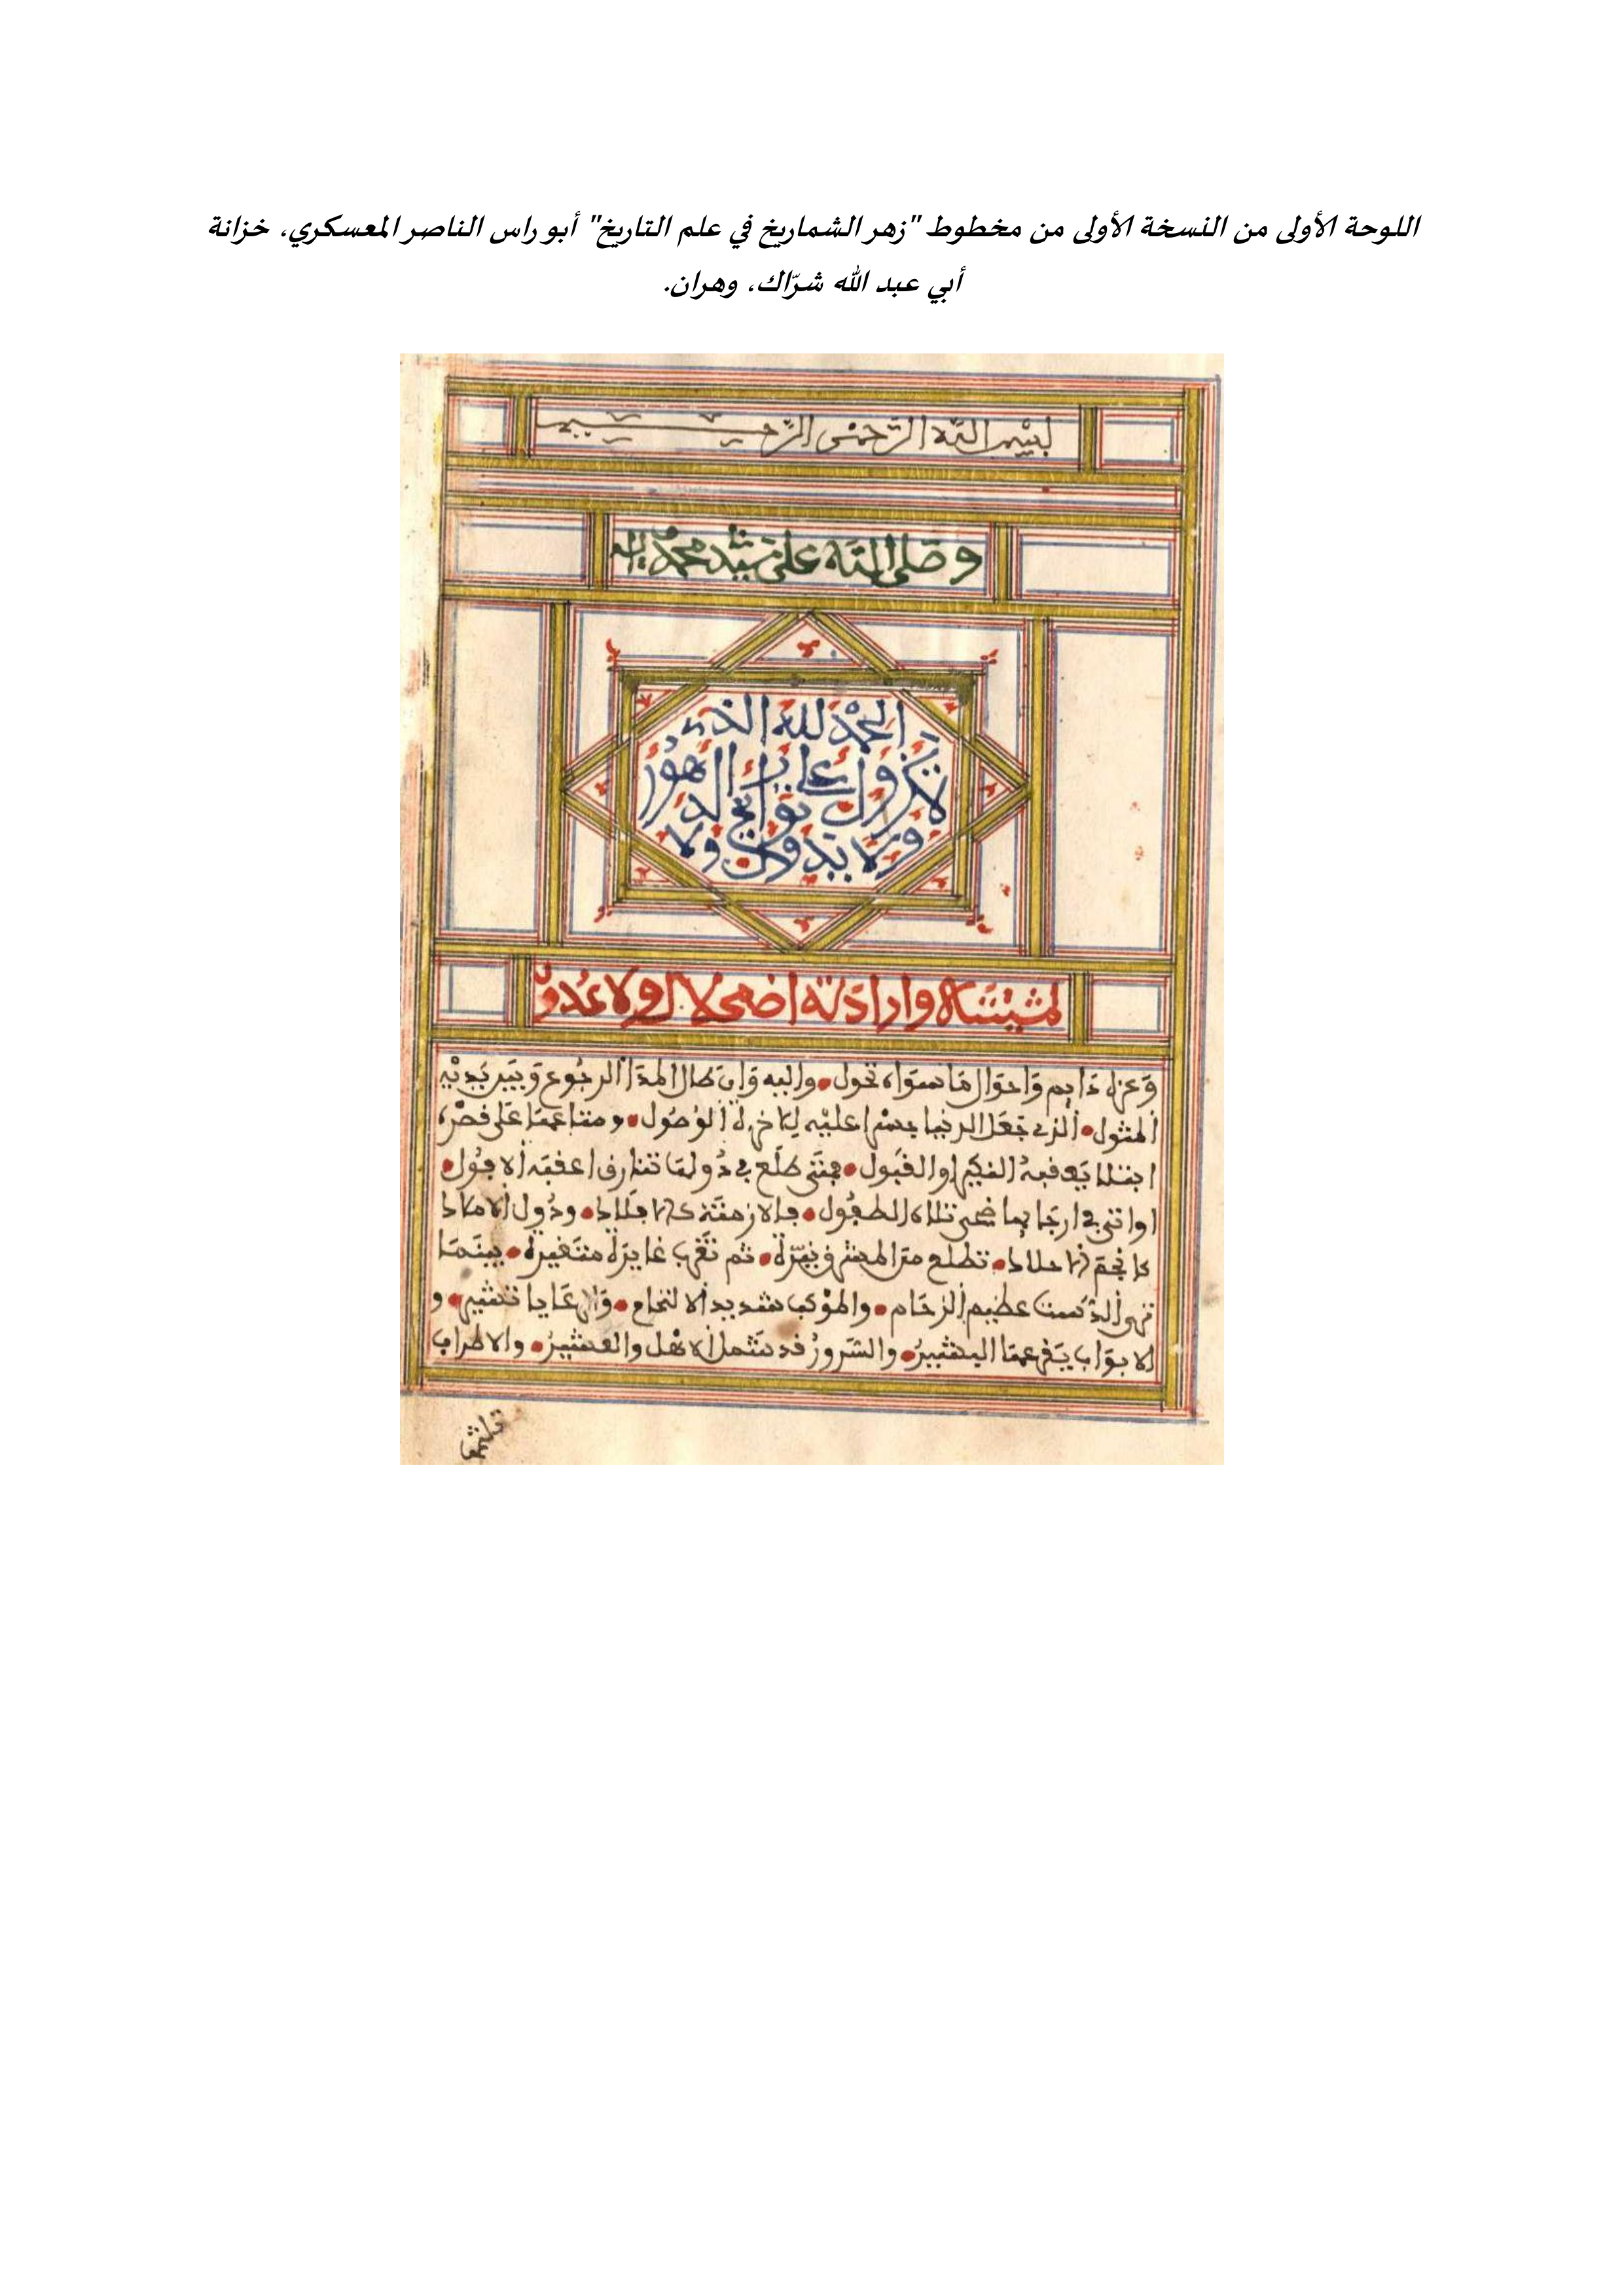 اللوحة الأولى من النسخة الأولى من مخطوط "زهر الشماريخ في علم التاريخ" أبو راس الناصر المعسكري، خزانة
أبي عبد الله شرّاك، وهران.
بسم الله الرحمن الرحيم
وصلى الله على سيد محمد
الحمد لله الذي
لا يزول على مر الدهور
ولا
لمشيئته وارادته اضمحلال ولا عدول
وعزه دايم واحوال ما سواه تحول والیه وان طال المدا الرجوع وبين يديه
المثول الذي جعل الدنيا جسرا عليه للاخرة الوصول ومتاعها على قصره
ابتلا يعقبه او القبول فمتى طلع في دولها شارق اعقبه الافول
او اتى في ارجايها ضحى تلاه الطفول فالازمنة كالافلاك ودول الاملاك
كانجم الاحلاك تطلع من المشرق نيرة ثم تغرب غايرة متغيرة بينما
ترى الدست عظيم الزحام والموكب شديد الالتحام والرعايا تشير و
الابواب يقرعها البشير والسرور قد شمل الاهل والعشير والاطراف